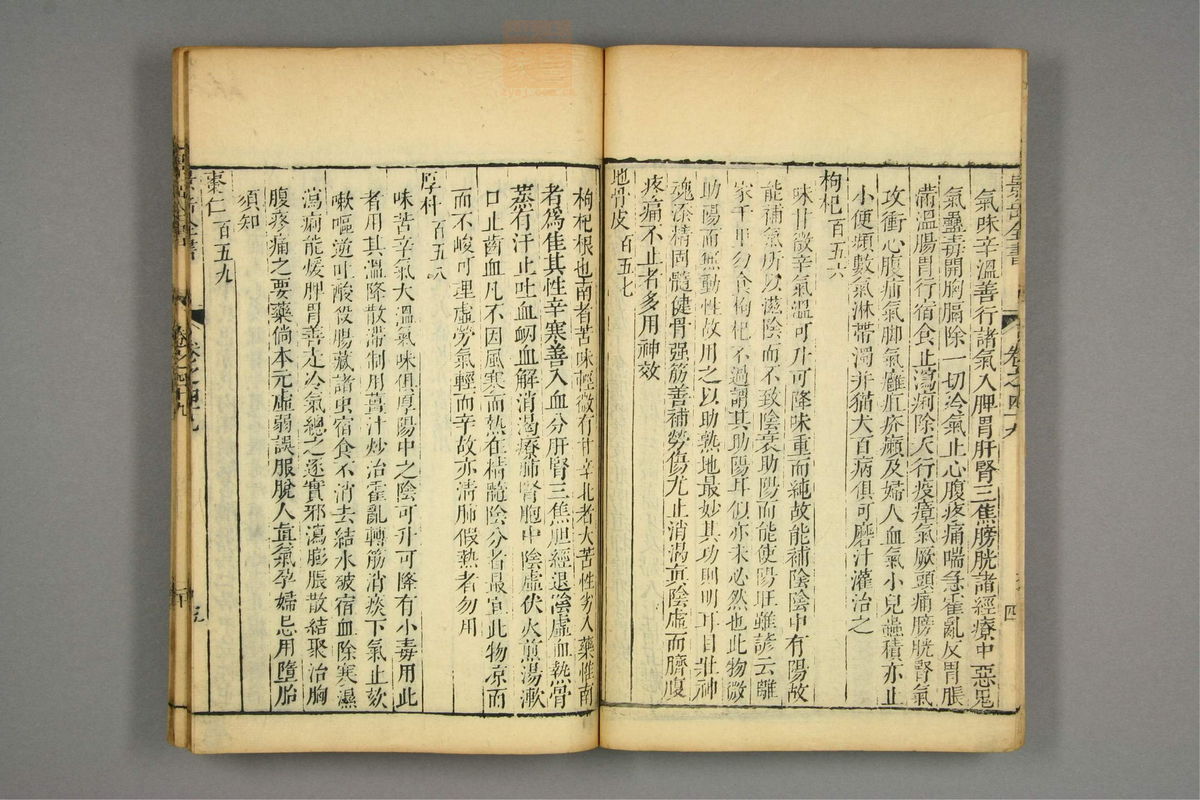 景岳全書 卷之四十九 四
氣味辛溫善行諸氣入脾胃肝腎三焦膀胱諸經療中惡鬼
氣蠱毒開胸膈除一切冷氣止心腹疼痛喘急霍亂反胃脹
滿溫腸胃行宿食止瀉痢除天行疫瘴氣厥頭痛膀胱腎氣
攻衝心腹疝氣脚氣難疝疥癩及婦人血氣小兒蟲積亦止
小便頻數氣淋帶濁并猫犬百病俱可磨汁灌治之
枸杞百五六
味甘微辛氣溫可升可降味重而純故能補陰陰中有陽故
能補氣所以滋陰而不致陰衰助陽而能使陽旺雖諺云離
家千里勿食枸杞不過謂其助陽耳似亦未必然也此物微
助陽而無動性故用之以助熟地最妙其功則明耳目壯神
魂添精固髓健骨强筋善補勞傷尤止消渴真陰虛而臍腹
疼痛不止者多用神效
地骨皮百五七
枸杞根也南者苦味輕微有甘辛北者大苦性劣入藥惟南
者爲佳其性辛寒善入血分肝腎三焦胆經退陰虛血熱骨
蒸有汗止吐血衄血解消渴療肺腎胞中陰虛伏火煎湯漱
口止齒血凡不因風寒而熱在精髓陰分者最宜此物凉而
而不峻可理虛勞氣輕而辛故亦清肺假熱者勿用
厚朴百五八
味苦辛氣大溫氣味俱厚陽中之陰可升可降有小毒用此
者用其溫降散滯制用薑汁炒治霍亂轉筋消痰下氣止欬
嗽嘔逆吐酸殺腸藏諸虫宿食不消去結水破宿血除寒濕
瀉痢能煖脾胃善走冷氣總之逐實邪瀉膨脹散結聚治胸
腹疼痛之要藥倘本元虛弱誤服脫人真氣孕婦忌用墮胎
須知
棗仁百五九